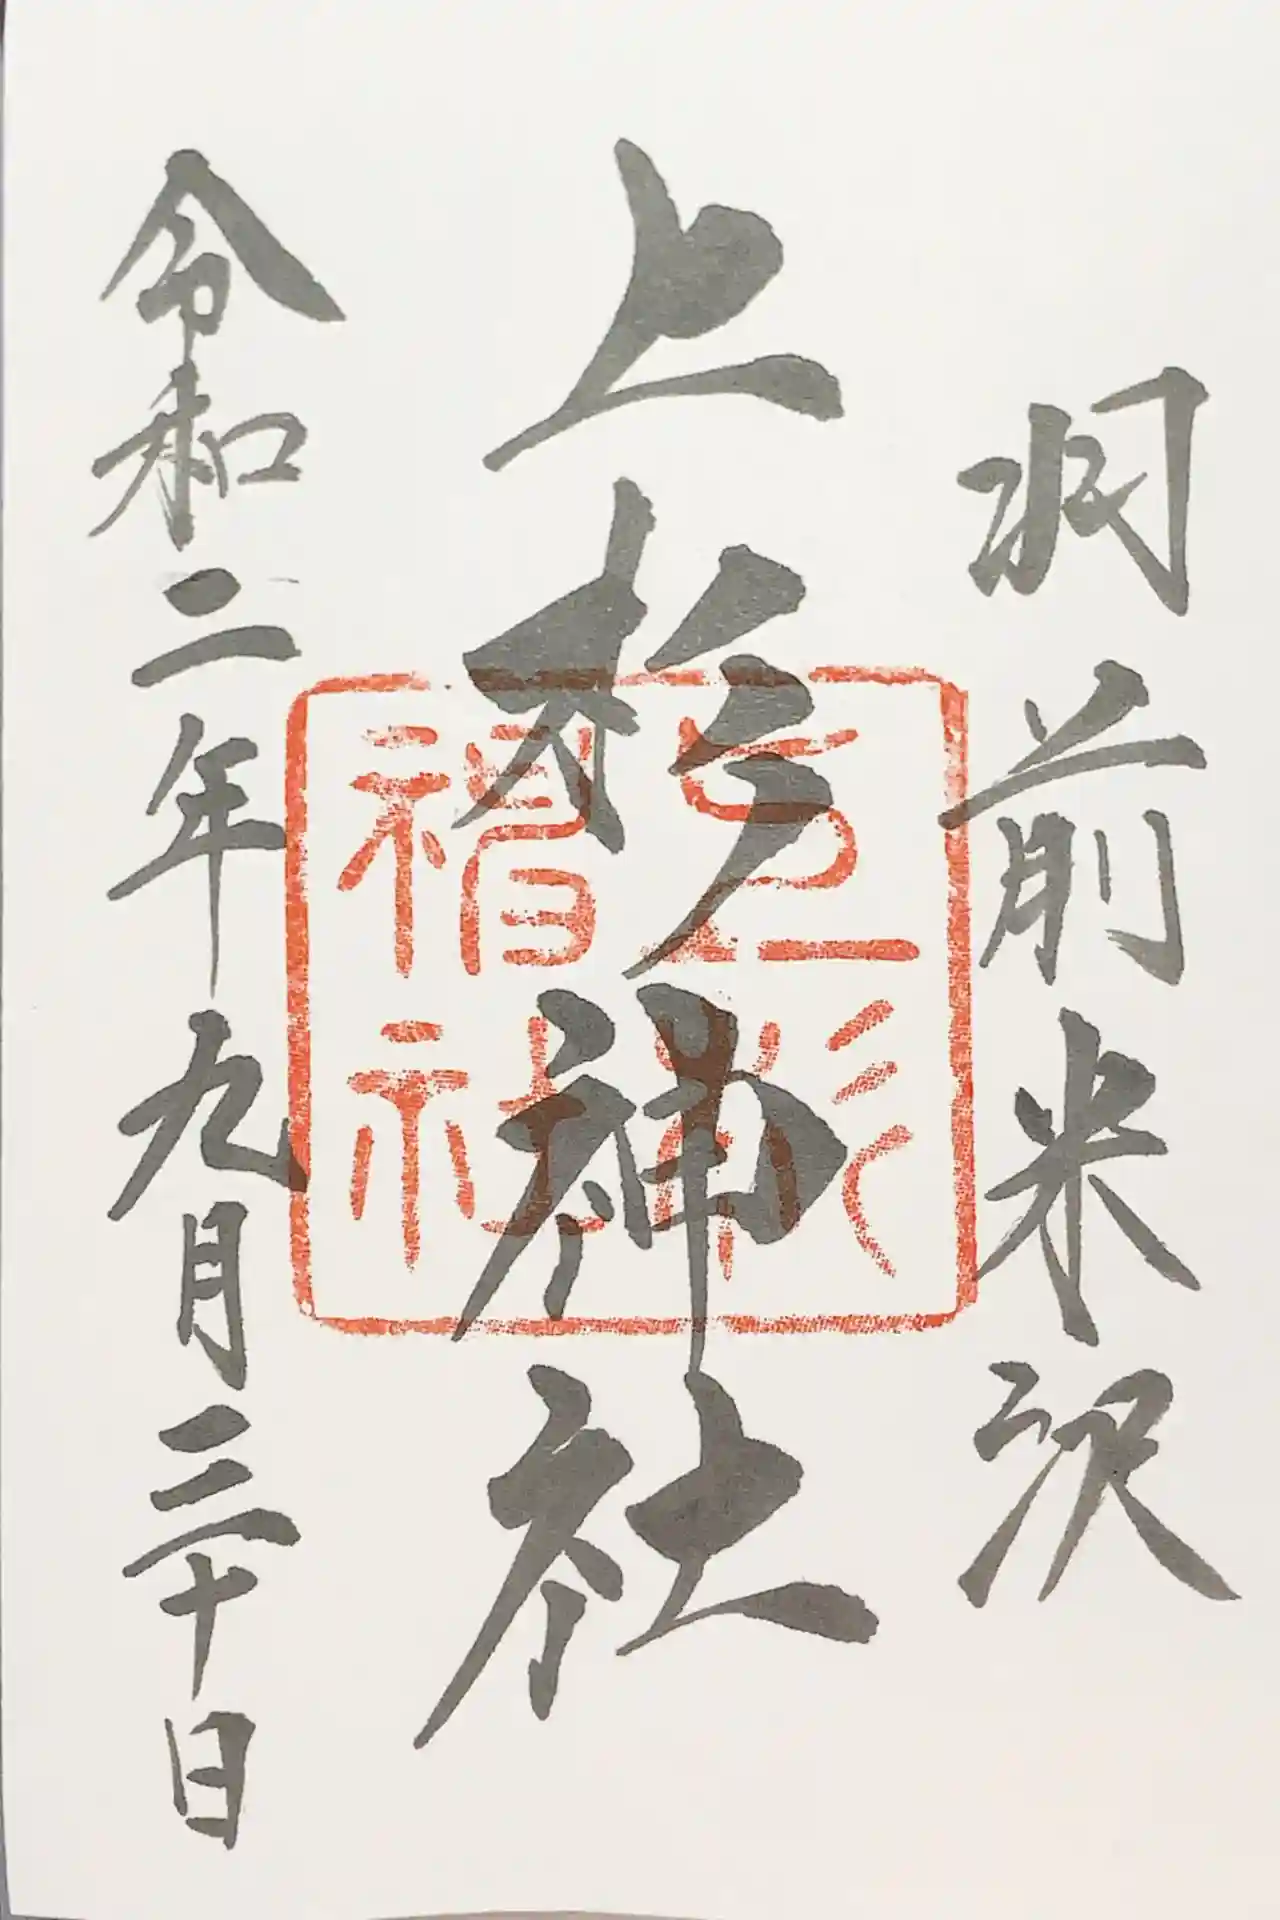 羽前米沢
上杉神社
上杉神社
令和二年九月三十日